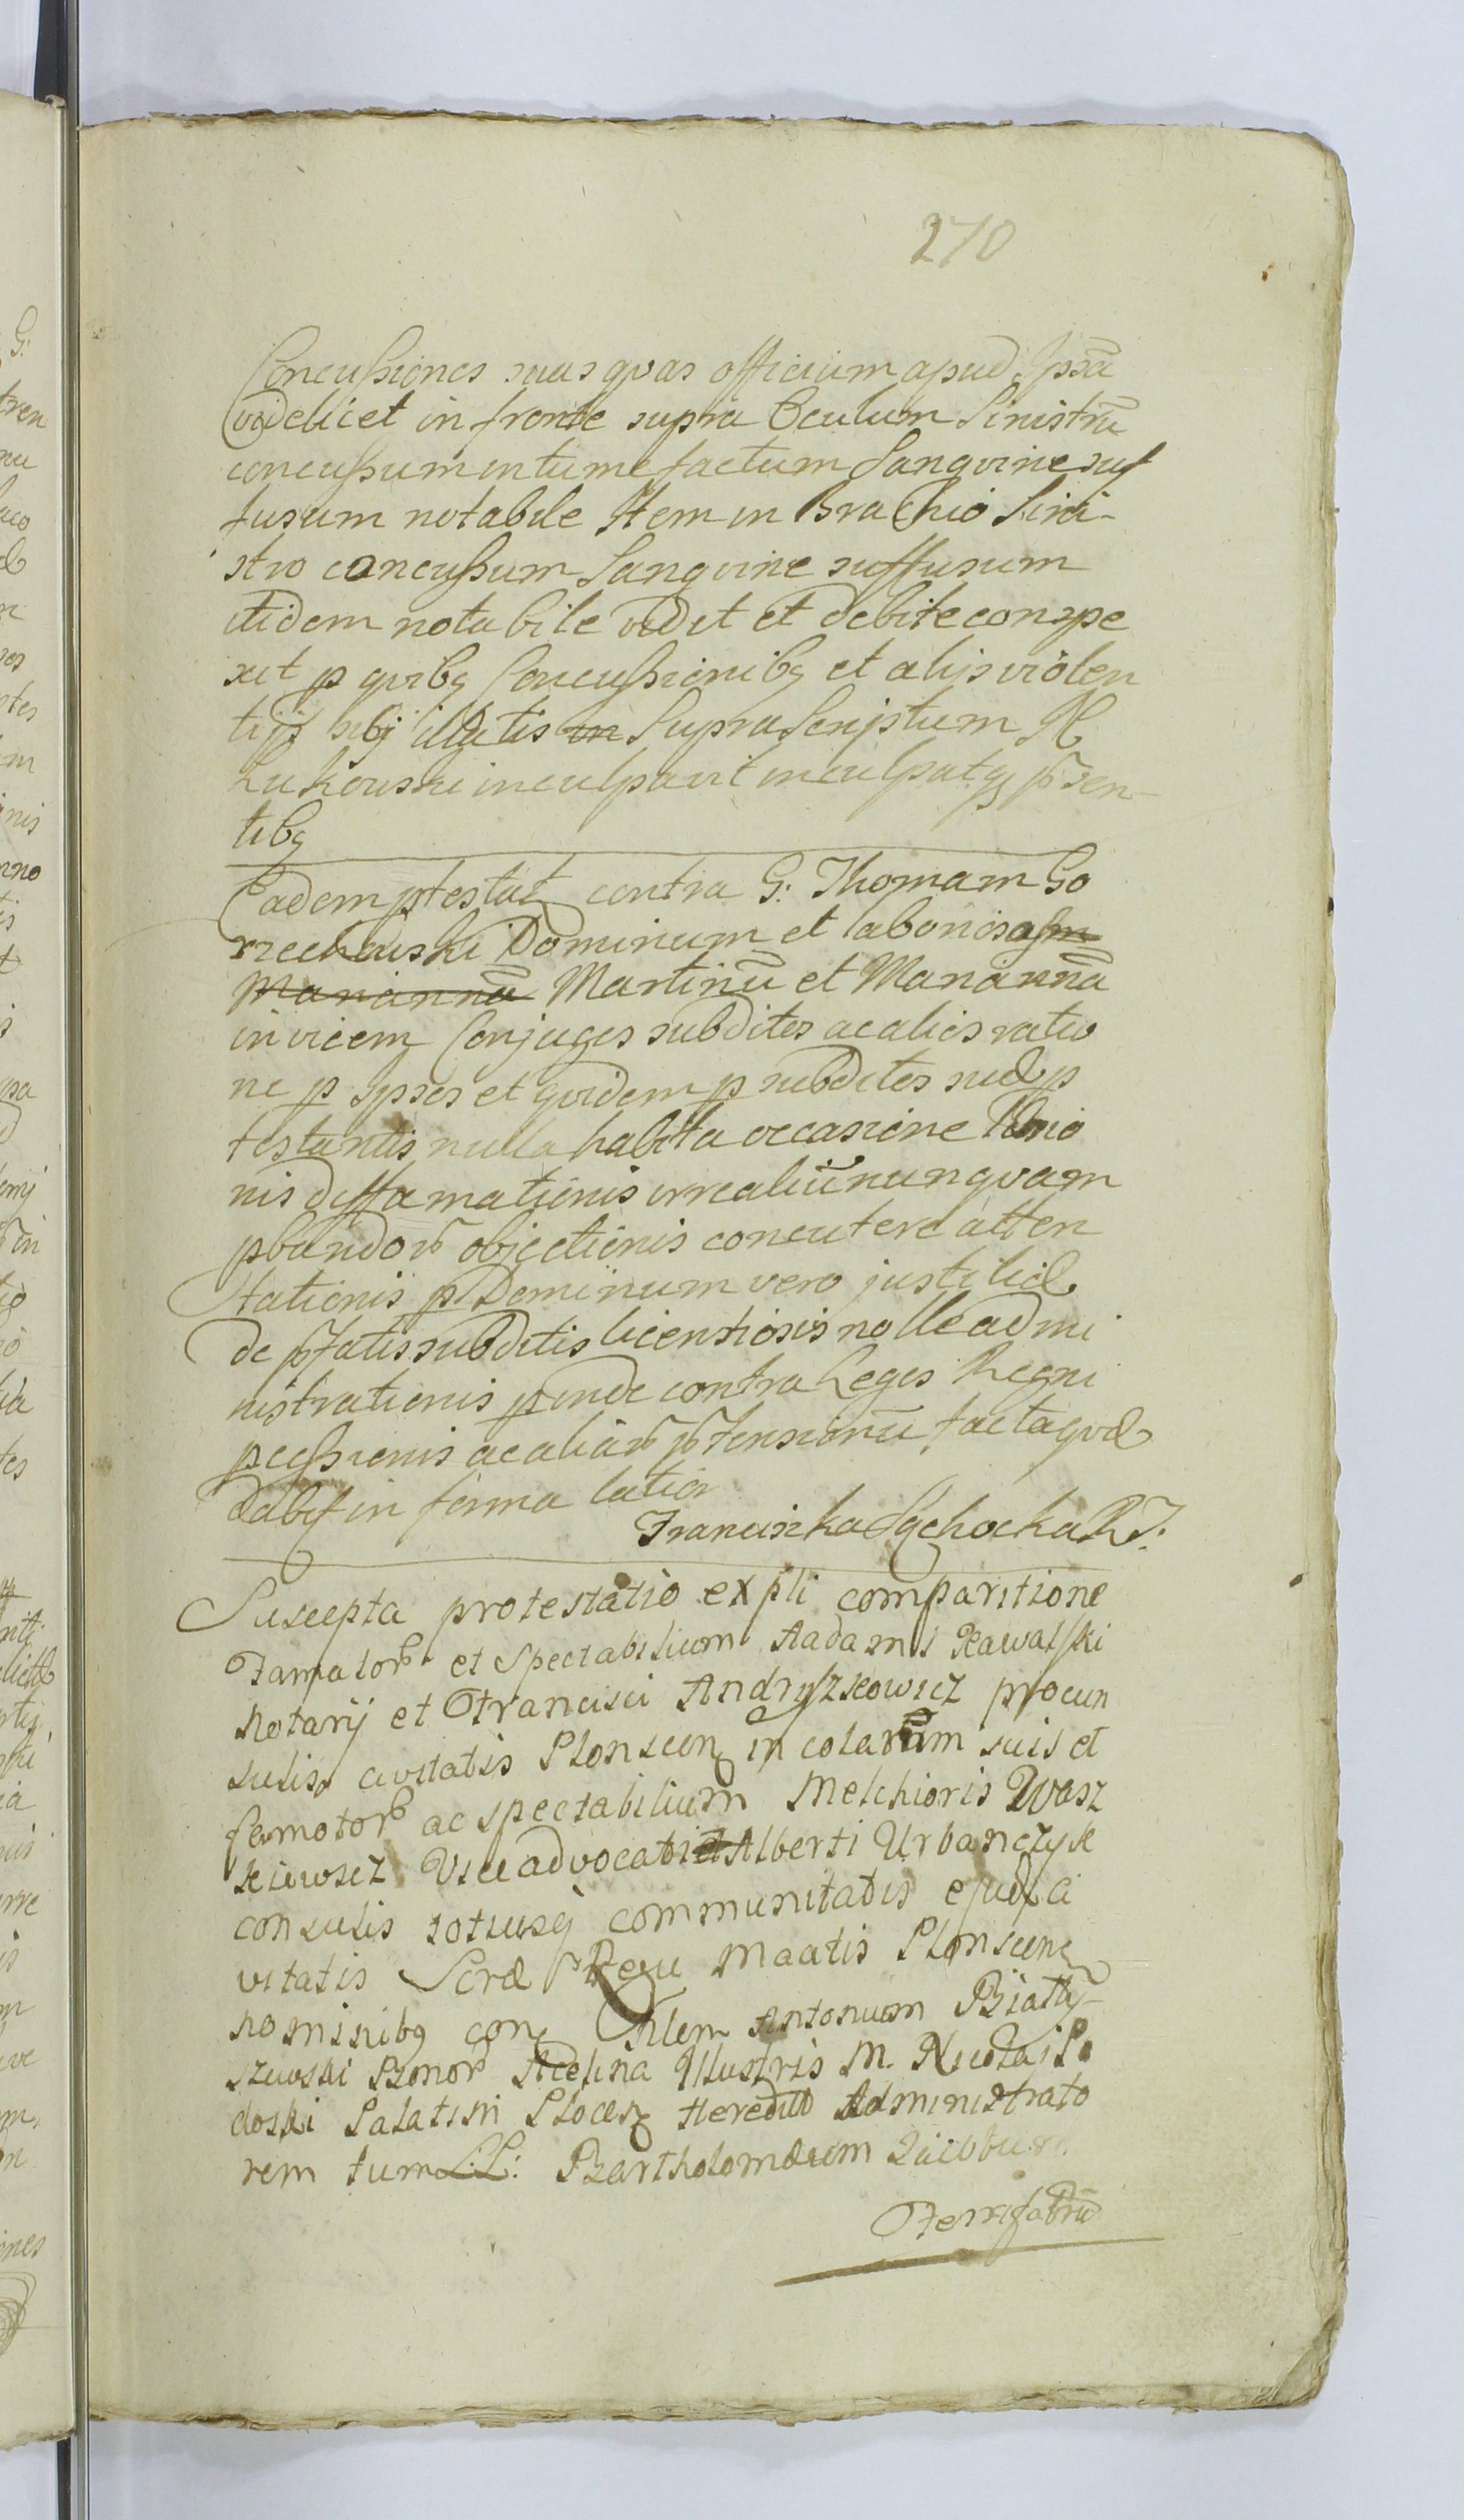 270
Concussiones suas quas officium apud Ipsã
videlicet in fronte supra Oculum Sinistrũ
concussum intumefactum Sanguine suf
fusum notabile Item in Brachio Sini-
stro concussum Sanguine suffusum
itidem notabile vidit et debite conspe
xit p quibq Concussionibq et alijs violen
tijs sibj illatis in Suprascriptum
Lukowski inculpavit inculpatq pñsen-
tibq
Eadem ptestat contra G: Thomam Go
rzechowski Dominum et laboriosos
Mariannã Martinũ et Mariannã
invicem Conjuges subditos ac alios ratio
ne p Ipsos et quidem p subditos sud p
testantis nulla habita occasione
nis diffamationis irrealiũ nunquam
pbandor objectionis concutere atten
tationis p Dominum vero justitiæ
de pfatis subditis licentiosis nolle admi
nistrationis pinde contra Leges Regni
pcessionis ac aliar ptensionũ factaqvæ
dabit in forma latior
Franciszka Sochocka RJ:
Suscepta protestatio expli comparitione
Famator et Spectabilium Aadami Kawalski
Notarij et Francisci Andryszkowicz procun
sulis civitatis Plonscen incolarum suis et
famotor ac spectabilium Melchioris Wasz
kiewicz Viceadvocati et Alberti Urbanczyk
consulis totiusq communitatis ejusd ci
vitatis Scræ Regu Maatis Plonscen
nominibq con Nlem Antonium Bially-
szewski Bonor Illustris M. Nicolai Po
doski Palatini Plocen Heredit Administrato
rem tum L:L: Bartholomæum
Ferrifabrũ